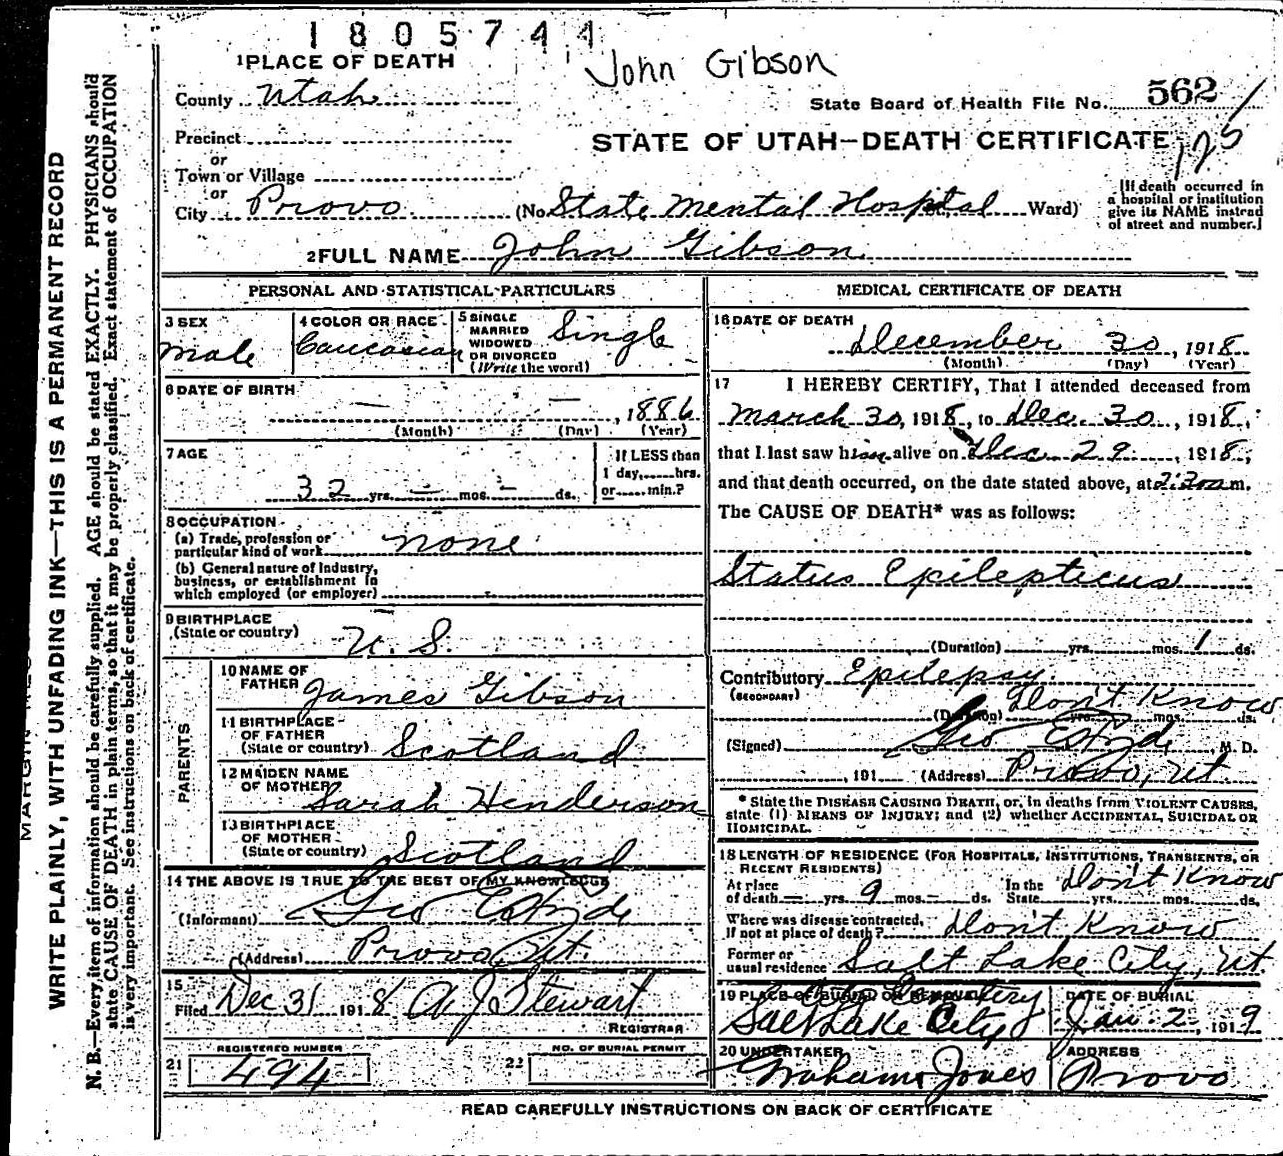 1805744
John Gibson
1 PLACE OF DEATH
County Utah
State Board of Health File No. 562
Precinct
STATE OF UTAH—DEATH CERTIFICATE
125
or
Town or Village
or
City Provo (No. State Mental Hospital Ward)
[If death occurred in
a hospital or institution
give its NAME instead
of street and number.]
2 FULL NAME John Gibson
PERSONAL AND STATISTICAL PARTICULARS
3 SEX
male
4 COLOR OR RACE
Caucasian
5 SINGLE
MARRIED
WIDOWED
OR DIVORCED
(Write the word)
Single
6 DATE OF BIRTH
— — , 1886
(Month) (Day) (Year)
7 AGE
32 yrs. — mos. — ds.
If LESS than
1 day, hrs.
or min.?
8 OCCUPATION
(a) Trade, profession or
particular kind of work none
(b) General nature of Industry,
business, or establishment in
which employed (or employer)
9 BIRTHPLACE
(State or country) U. S.
PARENTS
10 NAME OF
FATHER James Gibson
11 BIRTHPLACE
OF FATHER
(State or country) Scotland
12 MAIDEN NAME
OF MOTHER Sarah Henderson
13 BIRTHPLACE
OF MOTHER
(State or country) Scotland
14 THE ABOVE IS TRUE TO THE BEST OF MY KNOWLEDGE
(Informant) Geo E Hyde
(Address) Provo, Ut.
15
Filed Dec 31 1918 A J Stewart
REGISTRAR
REGISTERED NUMBER
21 494
NO. OF BURIAL PERMIT
22
MEDICAL CERTIFICATE OF DEATH
16 DATE OF DEATH
December 30, 1918
(Month) (Day) (Year)
17 I HEREBY CERTIFY, That I attended deceased from
March 30, 1918, to Dec. 30, 1918,
that I last saw him alive on Dec 29, 1918,
and that death occurred, on the date stated above, at 2:30 a m.
The CAUSE OF DEATH* was as follows:
Status Epilepticus
(Duration) yrs. mos. 1 ds.
Contributory Epilepsy
(SECONDARY)
(Duration) Don't Know yrs. mos. ds.
(Signed) Geo E Hyde, M. D.
, 191 (Address) Provo, Ut.
* State the DISEASE CAUSING DEATH, or, in deaths from VIOLENT CAUSES,
state (1) MEANS OF INJURY; and (2) whether ACCIDENTAL, SUICIDAL OR
HOMICIDAL.
18 LENGTH OF RESIDENCE (FOR HOSPITALS, INSTITUTIONS, TRANSIENTS, OR
RECENT RESIDENTS)
At place
of death — yrs. 9 mos. — ds.
In the
State Don't Know yrs. mos. ds.
Where was disease contracted,
If not at place of death? Don't Know
Former or
usual residence Salt Lake City, Ut.
19 PLACE OF BURIAL OR REMOVAL
City Cemetery
Salt Lake City
DATE OF BURIAL
Jan. 2, 1919
20 UNDERTAKER
Graham Jones
ADDRESS
Provo
READ CAREFULLY INSTRUCTIONS ON BACK OF CERTIFICATE
WRITE PLAINLY, WITH UNFADING INK—THIS IS A PERMANENT RECORD
N. B.—Every item of information should be carefully supplied. AGE should be stated EXACTLY. PHYSICIANS should
state CAUSE OF DEATH in plain terms, so that it may be properly classified. Exact statement of OCCUPATION
is very important. See instructions on back of certificate.